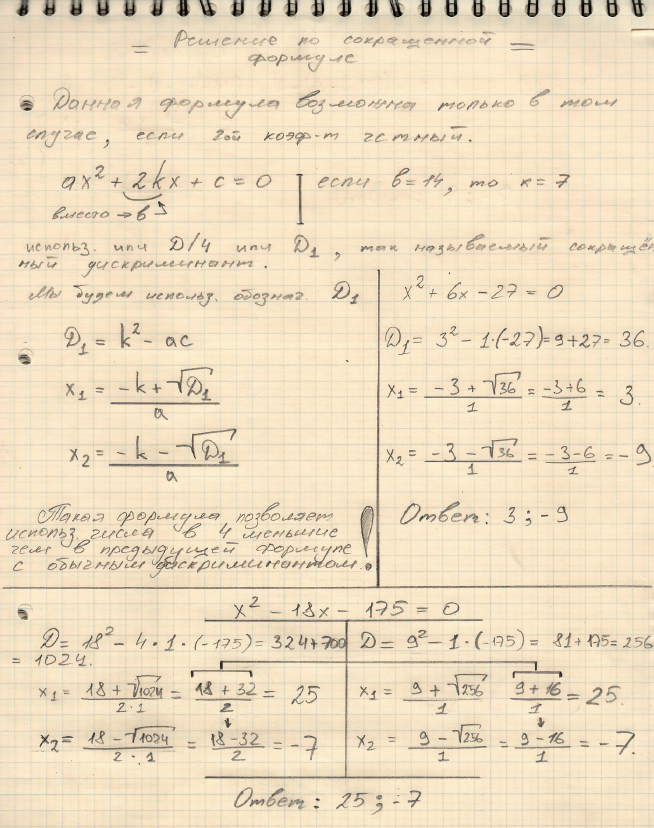 = Решение по сокращенной =
формуле
Данная формула возможна только в том
случае, если 2ой коэф-т четный.
ax² + 2kx + c = 0
если b=14, то k=7
вместо → b
использ. или D/4 или D₁, так называемый сокращён
ный дискриминант.
Мы будем использ. обознач. D₁
D₁ = k² - ac
x₁ = (-k + √D₁)/a
x₂ = (-k - √D₁)/a
Такая формула позволяет
использ. числа в 4 меньшие
чем в предыдущей формуле
с обычным дискриминантом. !
x² + 6x - 27 = 0
D₁ = 3² - 1·(-27) = 9+27 = 36.
x₁ = (-3 + √36)/1 = (-3+6)/1 = 3.
x₂ = (-3 - √36)/1 = (-3-6)/1 = -9
Ответ: 3 ; -9
x² - 18x - 175 = 0
D = 18² - 4·1·(-175) = 324+700
= 1024.
x₁ = (18 + √1024)/(2·1) = (18 + 32)/2 = 25
x₂ = (18 - √1024)/(2·1) = (18-32)/2 = -7
D = 9² - 1·(-175) = 81+175 = 256
x₁ = (9 + √256)/1 (9+16)/1 = 25.
x₂ = (9 - √256)/1 = (9-16)/1 = -7.
Ответ: 25 ; -7